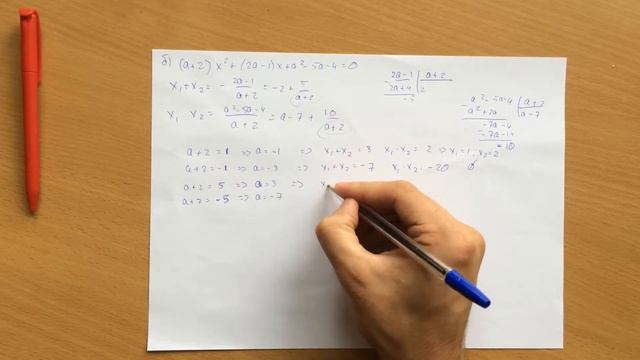 б) (a+2) x² + (2a-1)x + a² - 5a - 4 = 0
x₁+x₂ = - (2a-1)/(a+2) = -2 + 5/(a+2)
x₁ · x₂ = (a²-5a-4)/(a+2) = a-7 + 10/(a+2)
2a-1 | a+2
2a+4 | 2
-5
a²-5a-4 | a+2
a²+2a | a-7
-7a-4
-7a-14
10
a+2 = 1 => a=-1 => x₁+x₂ = 3 x₁·x₂ = 2 => x₁=1, x₂=2
a+2 = -1 => a=-3 => x₁+x₂ = -7 x₁·x₂ = -20 ∅
a+2 = 5 => a=3 => x
a+2 = -5 => a=-7